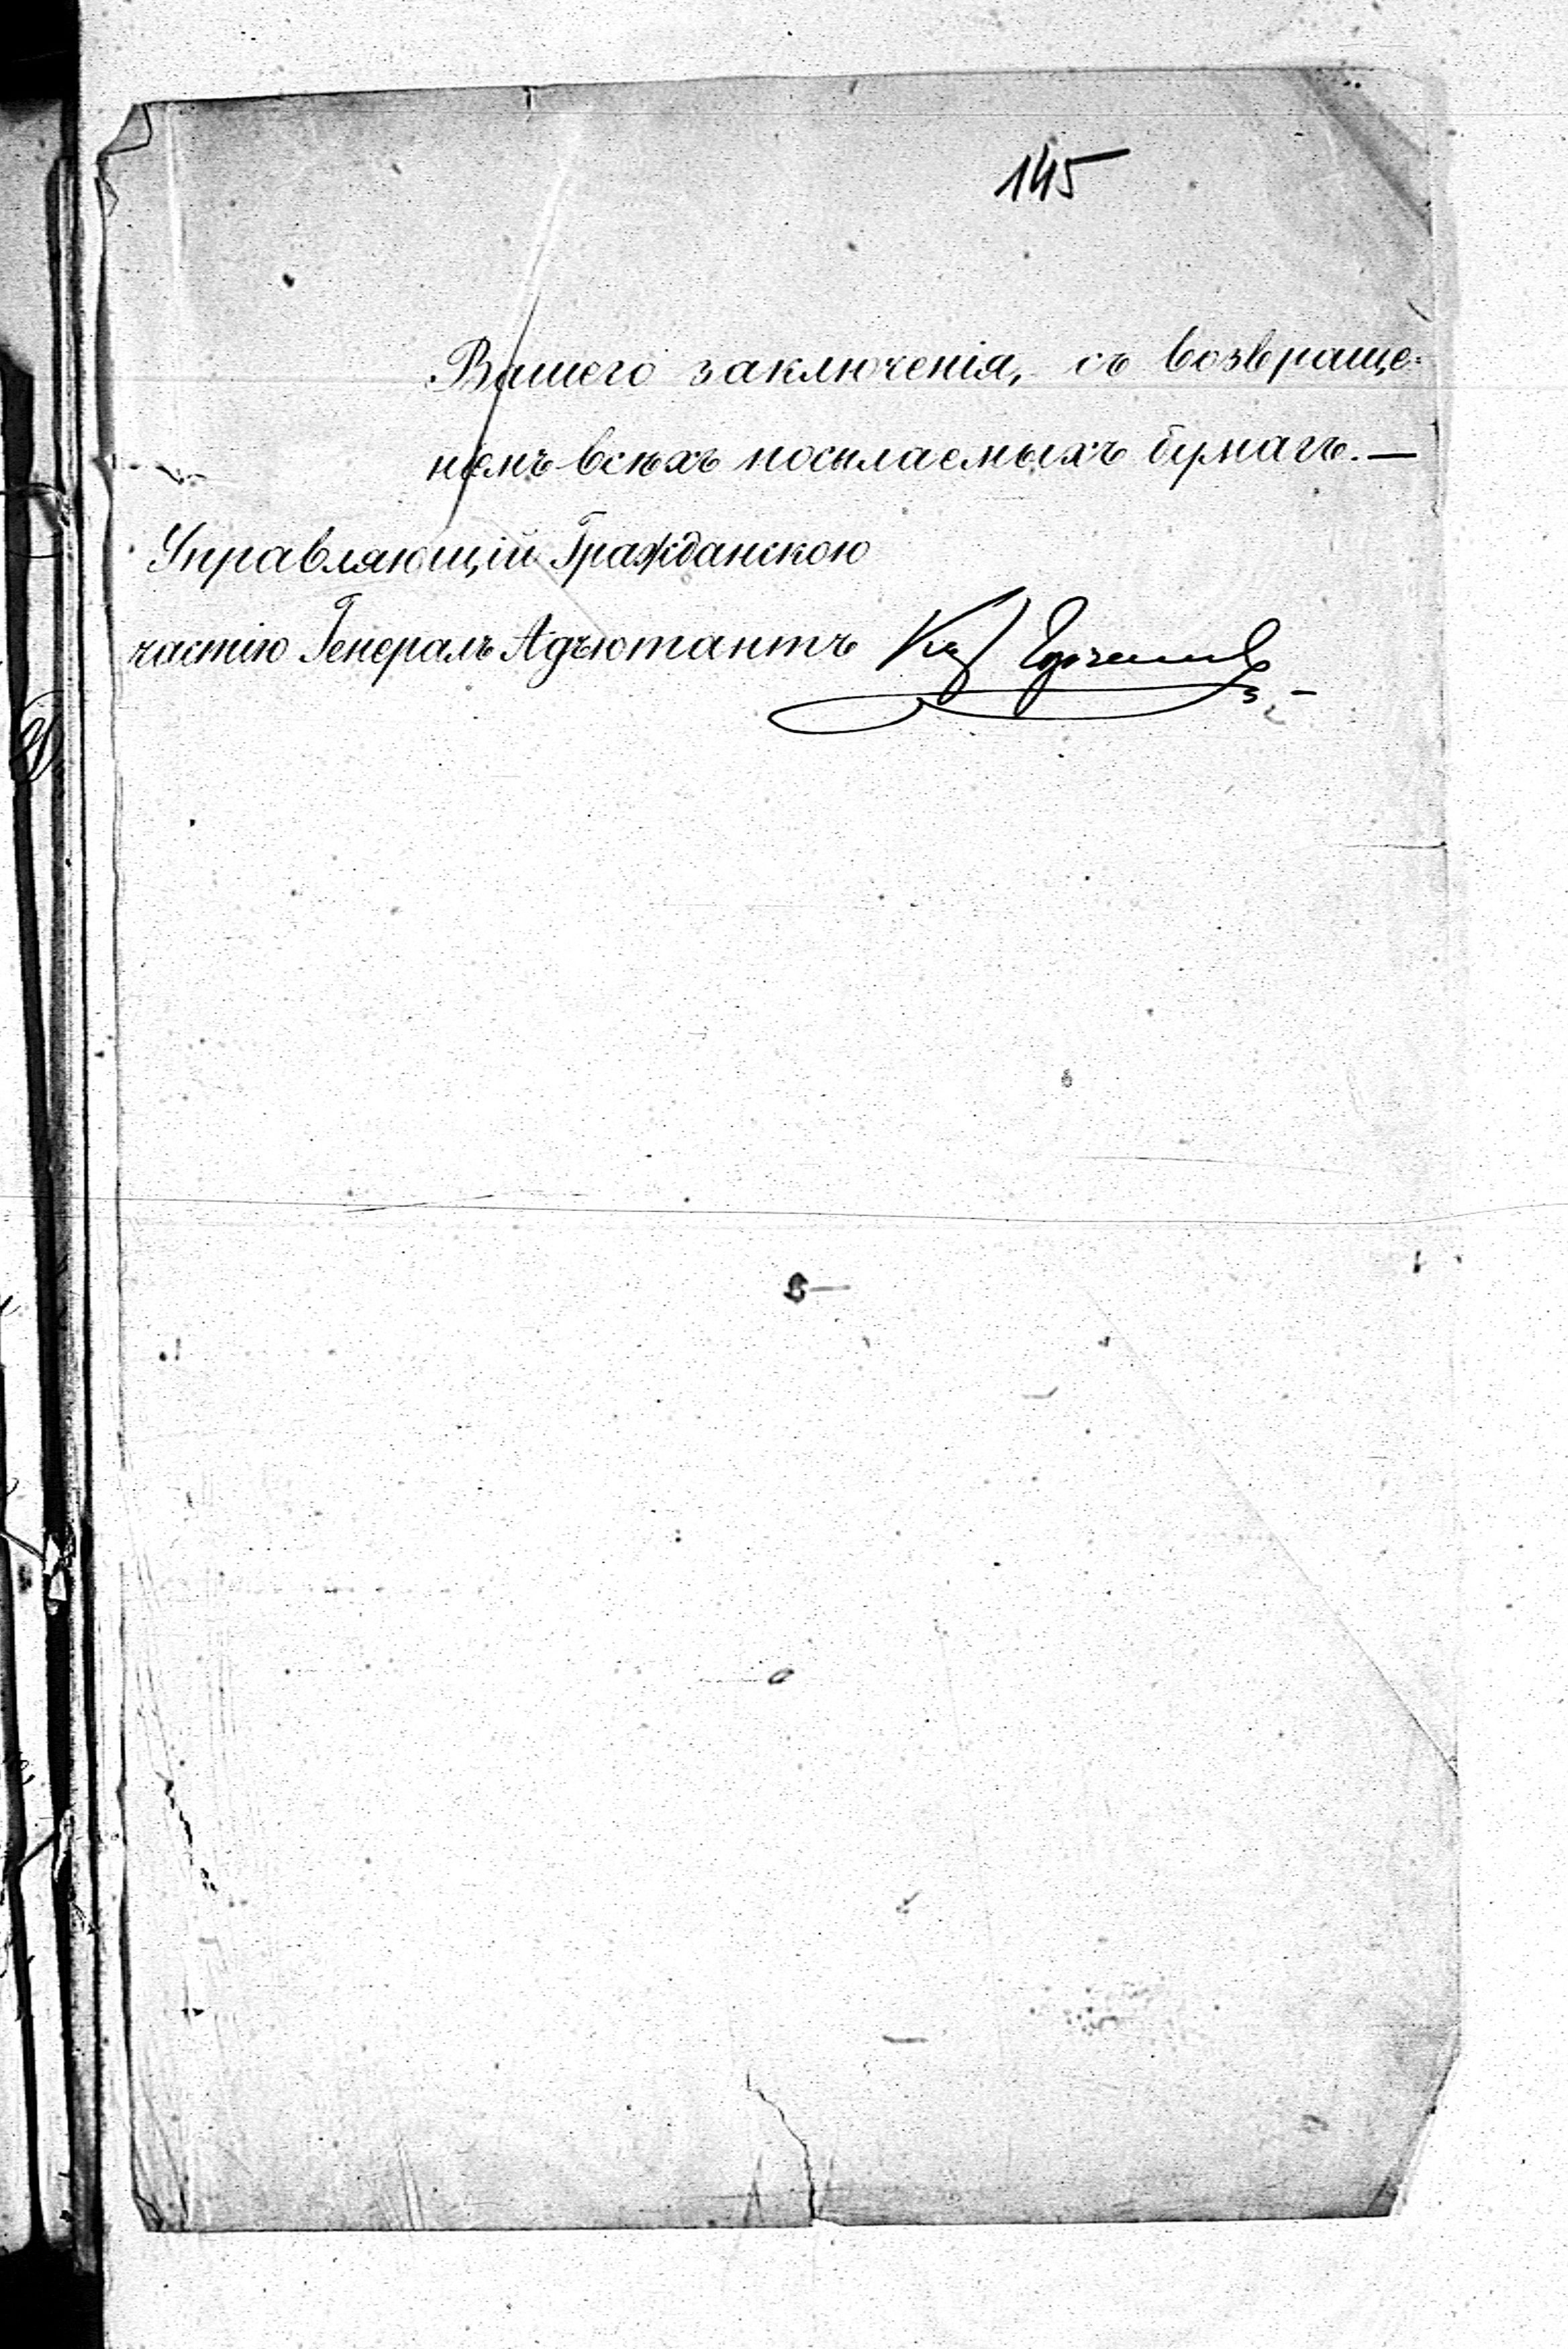 145
Вашего заключенія, съ возвраще=
ніемъ всѣхъ посылаемыхъ бумагъ.—
Управляющій Гражданскою
частію Генералъ Адъютантъ Кн. Горчаковъ